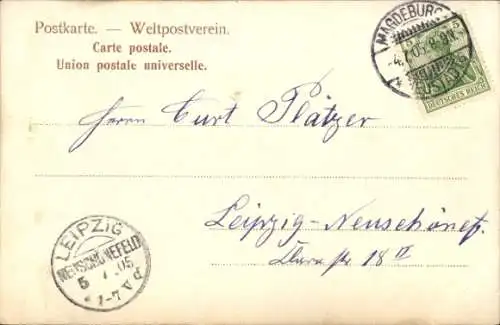 Postkarte. — Weltpostverein.
Carte postale.
Union postale universelle.
MAGDEBURG
NEUSTADT
DEUTSCHES REICH
Herrn Curt Platzer
Leipzig-Neuschönef.
Clara str. 18 II
LEIPZIG
NEUSCHÖNEFELD
5 05
1-7 V